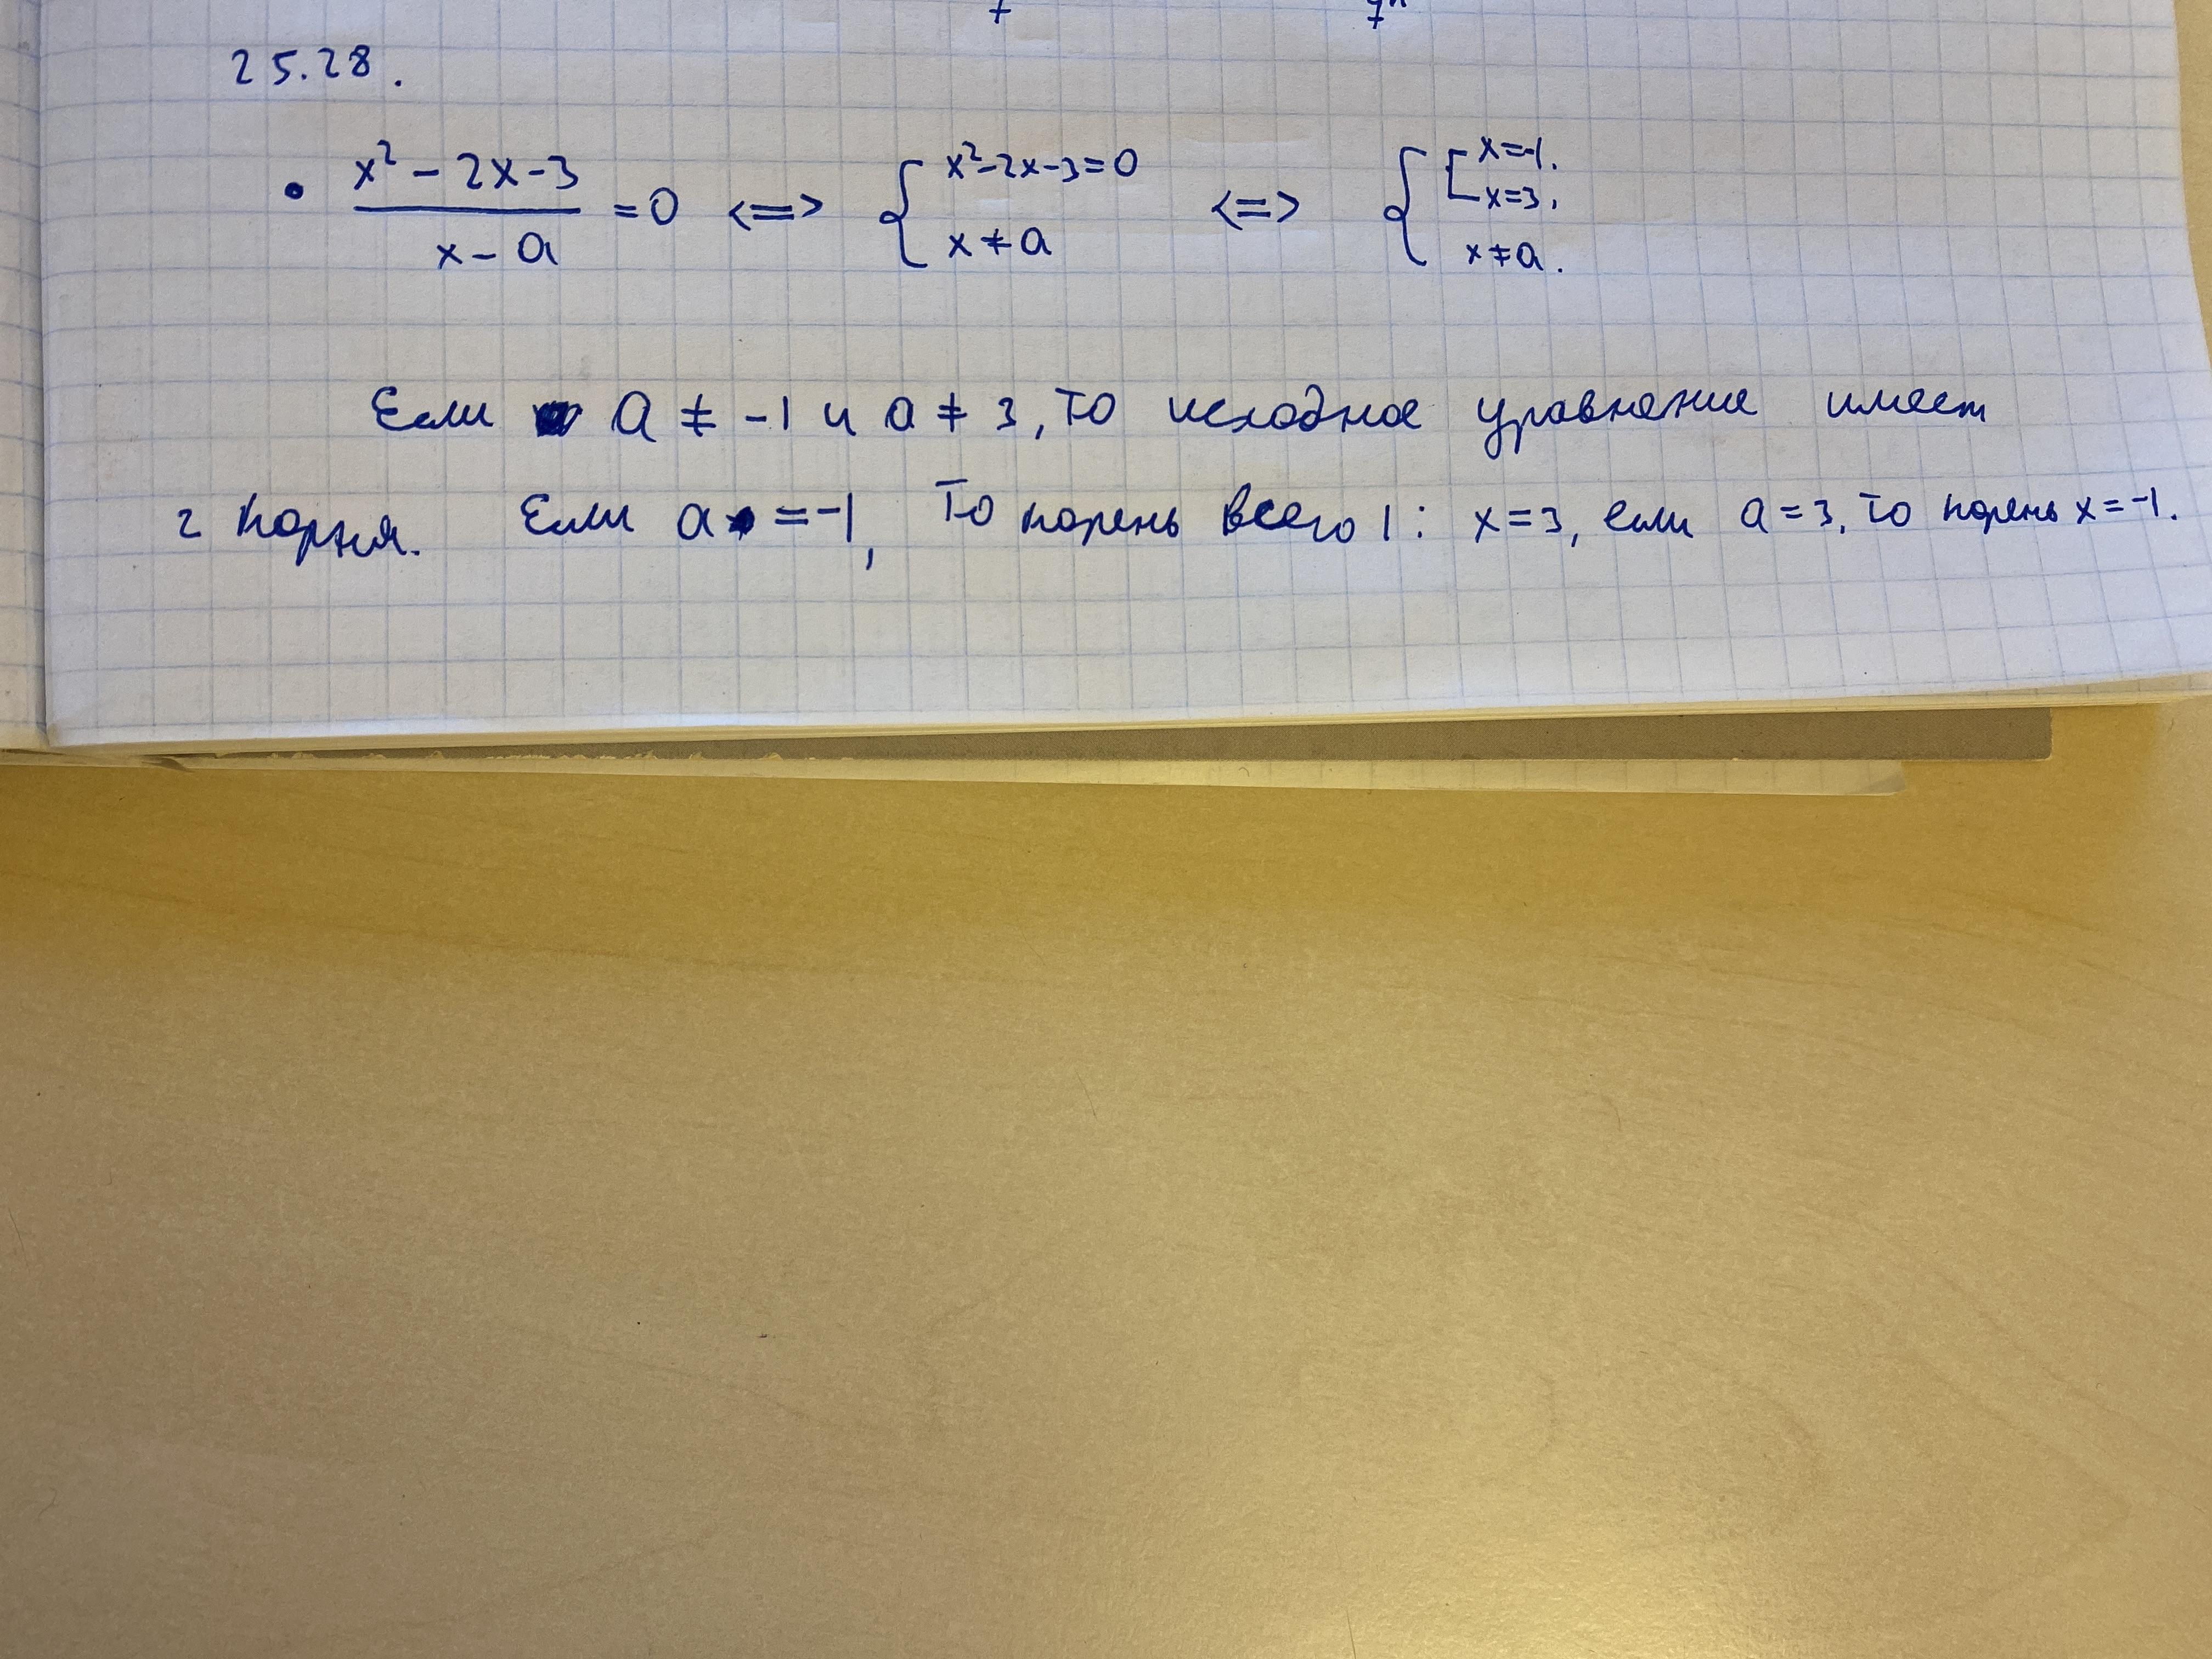 25.28.
• x² - 2x - 3 / x - a = 0 <=> { x² - 2x - 3 = 0 x ≠ a <=> { [ x = -1. x = 3, x ≠ a.
Если a ≠ -1 и a ≠ 3, то исходное уравнение имеет
2 корня. Если a = -1, то корень всего 1: x = 3, если a = 3, то корень x = -1.